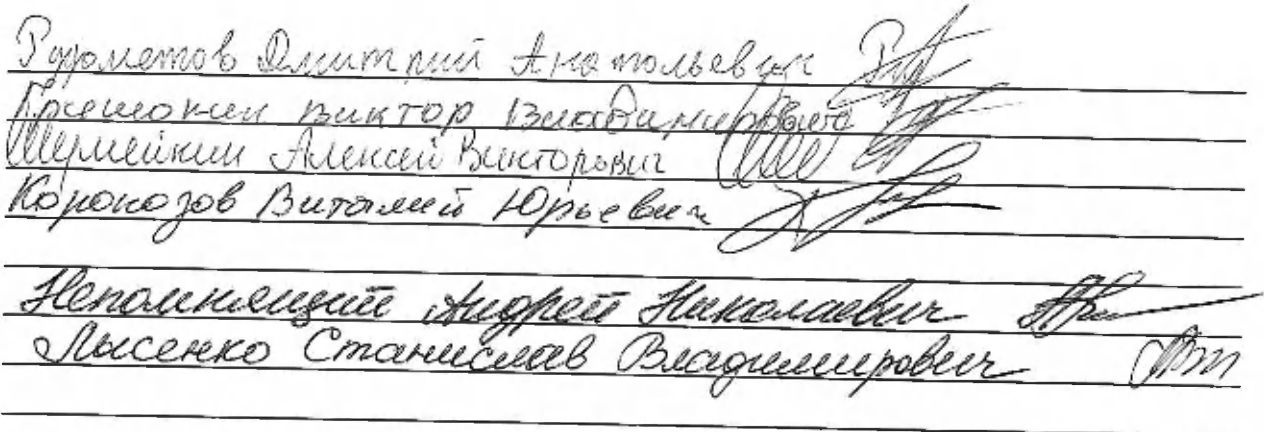 Рудометов Дмитрий Анатольевич
Виктор Владимирович
Шумейкин Алексей Викторович
Корокозов Виталий Юрьевич
Непомнящий Андрей Николаевич
Лысенко Станислав Владимирович